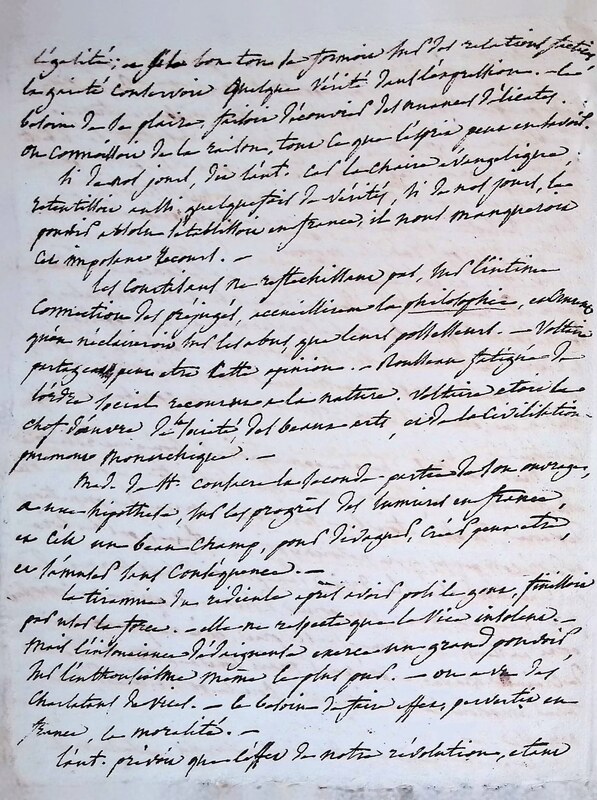 l'égalité; et si le bon ton se formoit sur des relations factices
la gaité conservoit quelque vérité dans l'expression. - le
besoin de se plaire, faisoit découvrir des nuances délicates.
on connoissoit de la raison, tout ce que l'esprit peut en savoir.
Si de nos jours, dit l'aut. car la chaire évangélique,
retentissoit aussi quelquefois de vérités, si de nos jours, le
pouvoir absolu s'établissoit en france, il nous manqueroit
cet imposant recours. -
les courtisans ne reflechissant pas, sur l'intime
connection des préjugés, accueillirent la philosophie, en
qu'en n'éclaireroit sur les abus, que leurs possesseurs. - Voltaire
partageoit peut etre cette opinion. - Rousseau fatigué de
l'ordre social recourut a la nature. Voltaire etoit le
chef d'œuvre de la société, des beaux arts, et de la civilisation
purement monarchique. -
Mad. de St. consacre la seconde partie de son ouvrage,
a une hipothese, sur les progrès des lumieres en france,
et c'est un beau champ, pour divaguer, créer peut etre,
et s'amuser sans conséquence. -
la tirannie du ridicule après avoir poli le gout, finissoit
par user la force. - elle ne respecte que le vice insolent. -
mais l'insouciance dédaigneuse exerce un grand pouvoir,
sur l'enthousiasme même le plus pur. - on a vu des
charlatans de vices. - le besoin de faire effet, pervertit en
france, la moralité. -
l'aut. prévoit que l'effet de notre révolution, etant